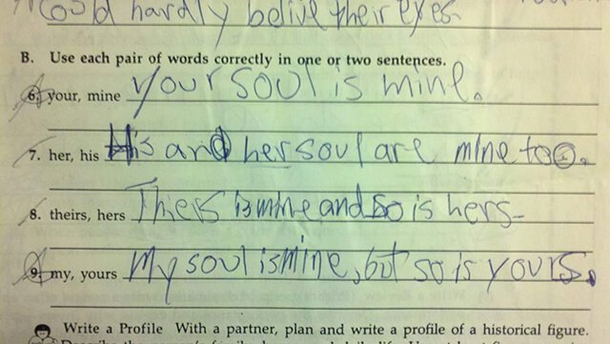 could hardly belive their eyes.
B. Use each pair of words correctly in one or two sentences.
6. your, mine Your soul is mine.
7. her, his His and her soul are mine too.
8. theirs, hers Thiers is mine and so is hers.
9. my, yours My soul is mine, but so is yours.
Write a Profile With a partner, plan and write a profile of a historical figure.